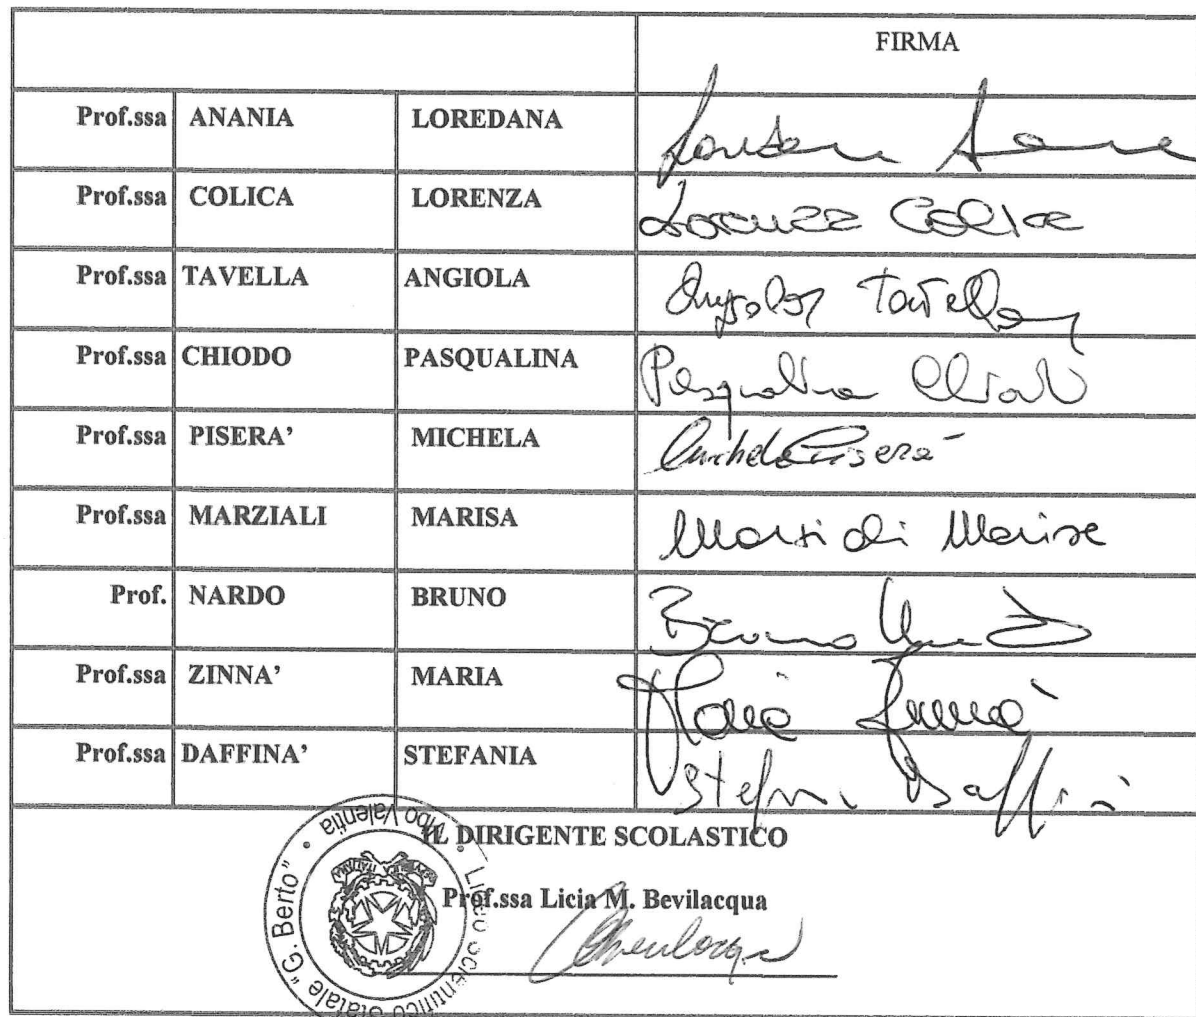 FIRMA
Prof.ssa ANANIA LOREDANA
Prof.ssa COLICA LORENZA Lorenza Colica
Prof.ssa TAVELLA ANGIOLA Angiola Tavella
Prof.ssa CHIODO PASQUALINA Pasqualina Chiodo
Prof.ssa PISERA’ MICHELA Michela Piserà
Prof.ssa MARZIALI MARISA Marisa
Prof. NARDO BRUNO Bruno Nardo
Prof.ssa ZINNA’ MARIA Maria Zinnà
Prof.ssa DAFFINA’ STEFANIA
IL DIRIGENTE SCOLASTICO
Prof.ssa Licia M. Bevilacqua
Bevilacqua
Liceo Scientifico Statale "G. Berto" • Vibo Valentia •